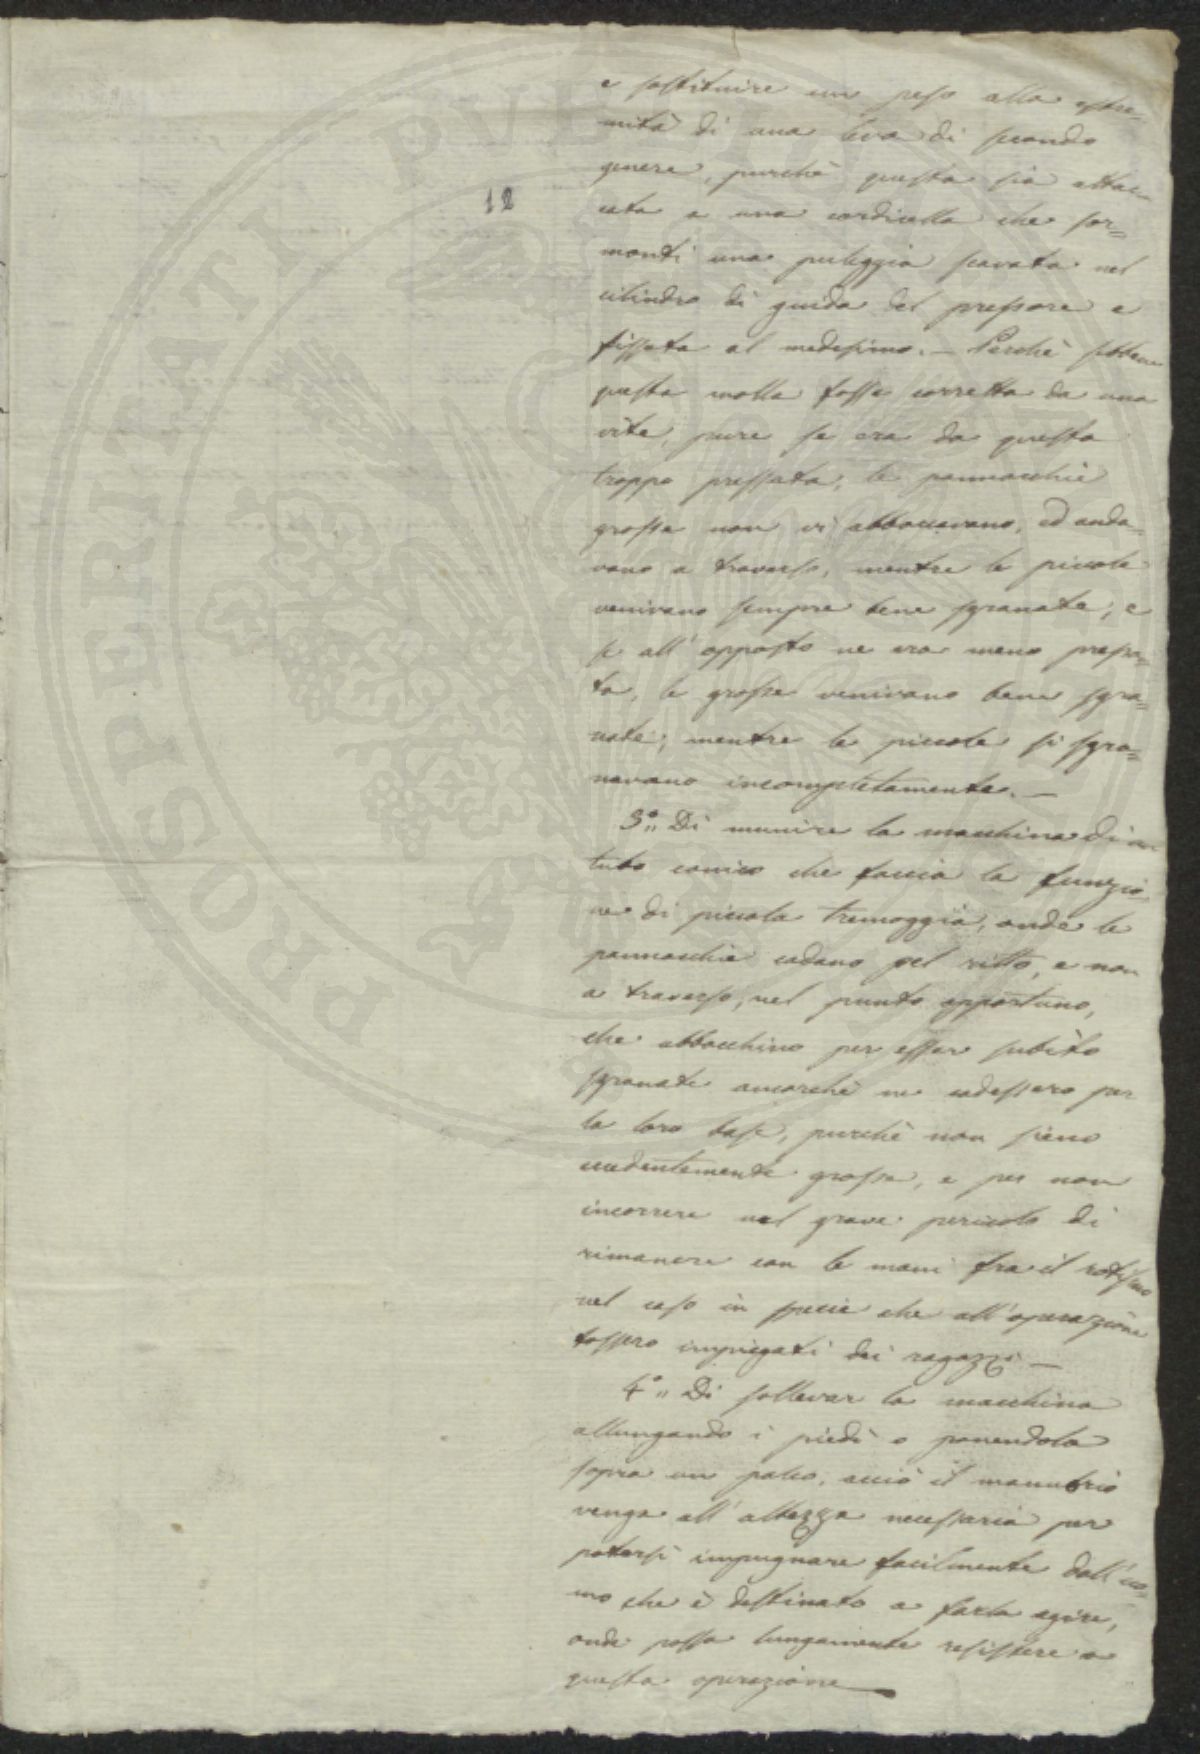 12
e sostituire un peso alla estre=
mità di una leva di secondo
genere, purchè questa sia attac=
cata a una cordicella che sor=
monti una puleggia scavata nel
cilindro di guida del pressore e
fissata al medesimo. — Perchè sebbene
questa molla fosse corretta da una
vite, pure se era da questa
troppo pressata, le pannocchie
grosse non vi abboccavano, ed anda=
vano a traverso, mentre le piccole
venivano sempre bene sgranate; e
se all'opposto ne era meno pressa=
ta, le grosse venivano bene sgra=
nate; mentre le piccole si sgra=
navano incompletamente. —
3°" Di munire la macchina di un
tubo conico che faccia la funzio=
ne di piccola tremoggia, onde le
pannocchie cadano pel ritto, e non
a traverso, nel punto opportuno,
che abbocchino per esser subito
sgranate ancorchè ne cadessero per
la loro base, purchè non sieno
eccedentemente grosse, e per non
incorrere nel grave pericolo di
rimanere con le mani fra il rotismo
nel caso in specie che all'operazione
fossero impiegati dei ragazzi —
4°" Di sollevar la macchina
allungando i piedi o ponendola
sopra un palco, acciò il manubrio
venga all'altezza necessaria per
potersi impugnare facilmente dall'uo=
mo che è destinato a farla agire,
onde possa lungamente resistere a
questa operazione —
PROSPERITATI